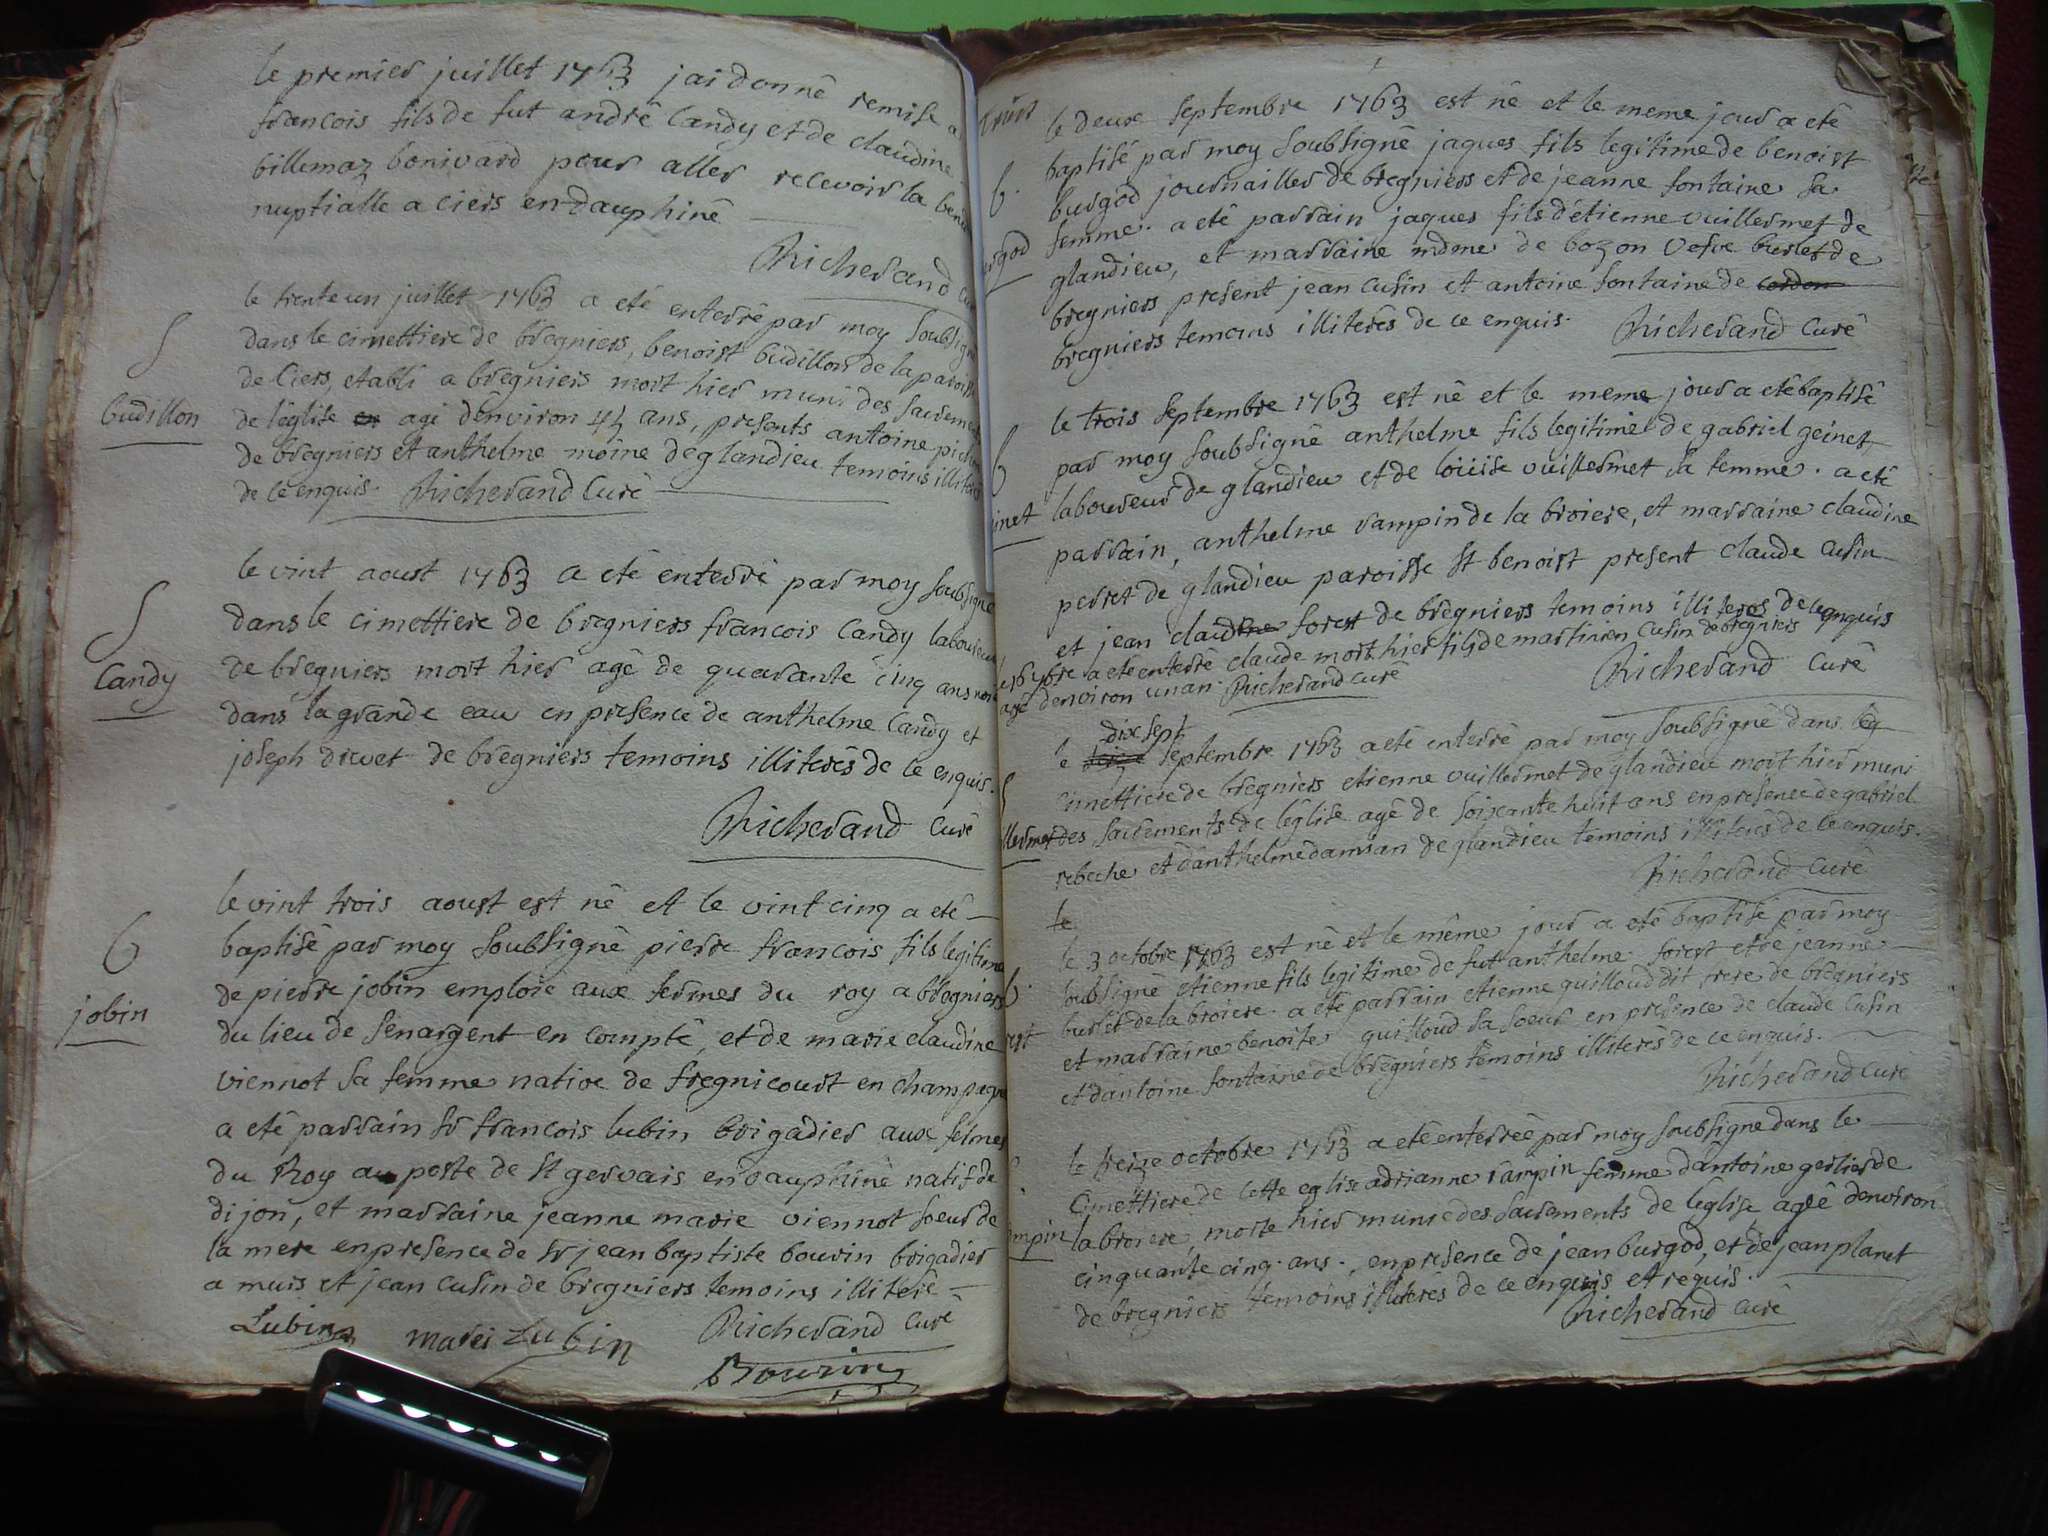 le premier juillet 1763 jai donné remise a
francois fils de fut andré Candy et de claudine
billemaz bonivard pour aller recevoir la
nuptialle a ciers en dauphiné
Richerand
le trente un juillet 1763 a eté enterré par moy
dans le cimettiere de bregniers, benoist budillon de la
de Ciers, etabli a bregniers mort hier muni des
budillon
de l'église agé d'environ ans, presents antoine
de bregniers et anthelme moine de glandieu temoins
de ce enquis. Richerand Curé
le vint aoust 1763 a eté enterré par moy soubsigné
S
dans le cimettiere de bregniers francois Candy laboureur
Candy
de bregniers mort hier agé de quarante cinq ans
dans la grande eau en presence de anthelme Candy et
joseph drevet de bregniers temoins illiterés de ce enquis.
Richerand Curé
le vint trois aoust est né et le vint cinq a eté
b
baptisé par moy soubsigné pierre francois fils legitime
jobin
de pierre jobin emploié aux fermes du roy a bregniers
du lieu de senargent en compté, et de marie claudine
viennot sa femme native de fregnicourt en champagne
a eté parrain sr francois lubin brigadier aux fermes
du Roy au poste de st gervais en dauphiné natif de
dijon, et marraine jeanne marie viennot soeur de
la mere en presence de sr jean baptiste bouvin brigadier
a murs et jean cusin de bregniers temoins illiteré
Lubin marei Lubin Richerand Curé
Bouvin
le deux septembre 1763 est né et le meme jour a eté
b.
baptisé par moy soubsigné jaques fils legitime de benoist
burgod journailler de bregniers et de jeanne fontaine sa
femme. a eté parrain jaques fils d'étienne vuillermet de
glandieu, et marraine de bozon burlet de
bregniers present jean cusin et antoine fontaine de cordon
bregniers temoins illiterés de ce enquis. Richerand Curé
le trois septembre 1763 est né et le meme jour a eté baptisé
b
par moy soubsigné anthelme fils legitime de gabriel geinet
laboureur de glandieu et de loüise vuillermet sa femme. a eté
parrain, anthelme rampin de la broiere, et marraine claudine
perret de glandieu paroisse st benoist present claude cusin
et jean forest de bregniers temoins illiterés de ce enquis
a eté enterré claude mort hier fils de martinien cusin de bregniers
agé denviron un an. Richerand curé
Richerand Curé
dix sept
le septembre 1763 a eté enterré par moy soubsigné dans le
cimettiere de bregniers etienne vuillermet de glandieu mort hier muni
des sacrements de l'église agé de soixante huit ans en presence de gabriel
rebeche et d'anthelme damian de glandieu temoins illiterés de ce enquis.
Richerand Curé
le
le 3 octobre 1763 est né et le même jour a eté baptisé par moy
soubsigné etienne fils legitime de fut anthelme forest et de jeanne
burlet de la broiere. a eté parrain etienne quilloud dit rere de bregniers
et marraine benoite quilloud sa soeur en presence de claude cusin
et d'antoine fontaine de bregniers temoins illiterés de ce enquis.
Richerand Curé
le treize octobre 1763 a eté enterrée par moy soubsigné dans le
cimettiere de cette eglise adrianne rampin femme d'antoine gerlier de
la broiere, morte hier munie des sacrements de l'église agée d'environ
cinquante cinq ans., en presence de jean burgod, et de jean planet
de bregniers temoins illiterés de ce enquis et requis.
Richerand Curé